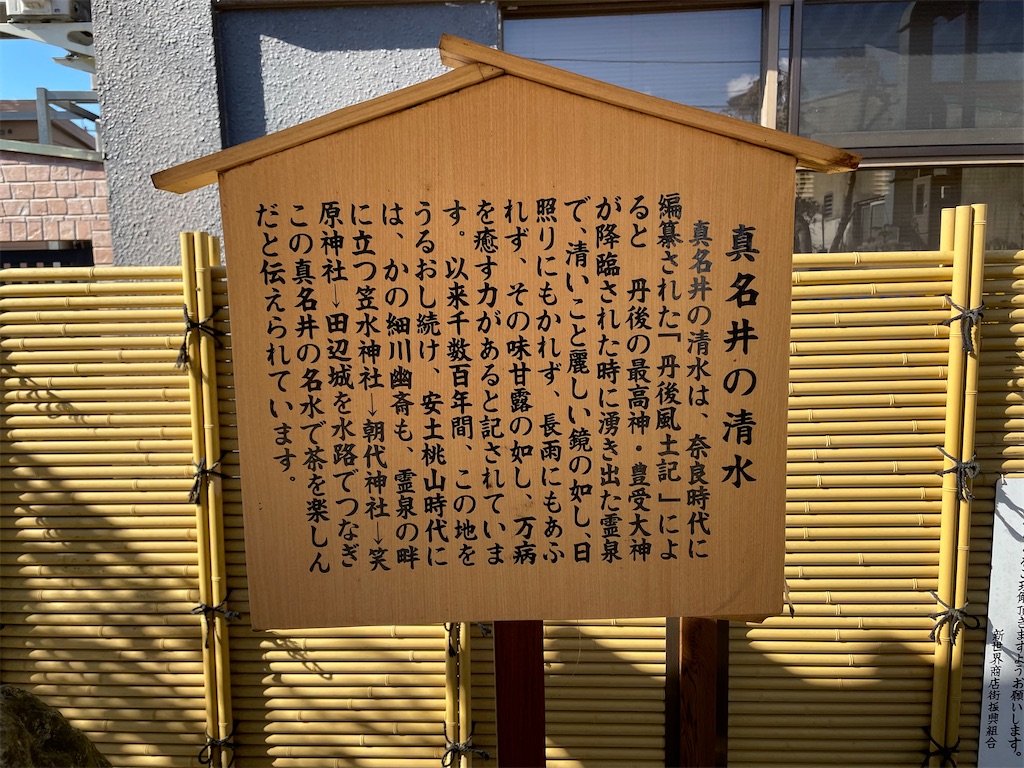 真名井の清水
真名井の清水は、奈良時代に
編纂された「丹後風土記」によ
ると 丹後の最高神・豊受大神
が降臨された時に湧き出た霊泉
で、清いこと麗しい鏡の如し、日
照りにもかれず、長雨にもあふ
れず、その味甘露の如し、万病
を癒す力があると記されていま
す。以来千数百年間、この地を
うるおし続け、安土桃山時代に
は、かの細川幽斎も、霊泉の畔
に立つ笠水神社→朝代神社→笑
原神社→田辺城を水路でつなぎ
この真名井の名水で茶を楽しん
だと伝えられています。
ご理解頂きますようお願いします。
新世界商店街振興組合